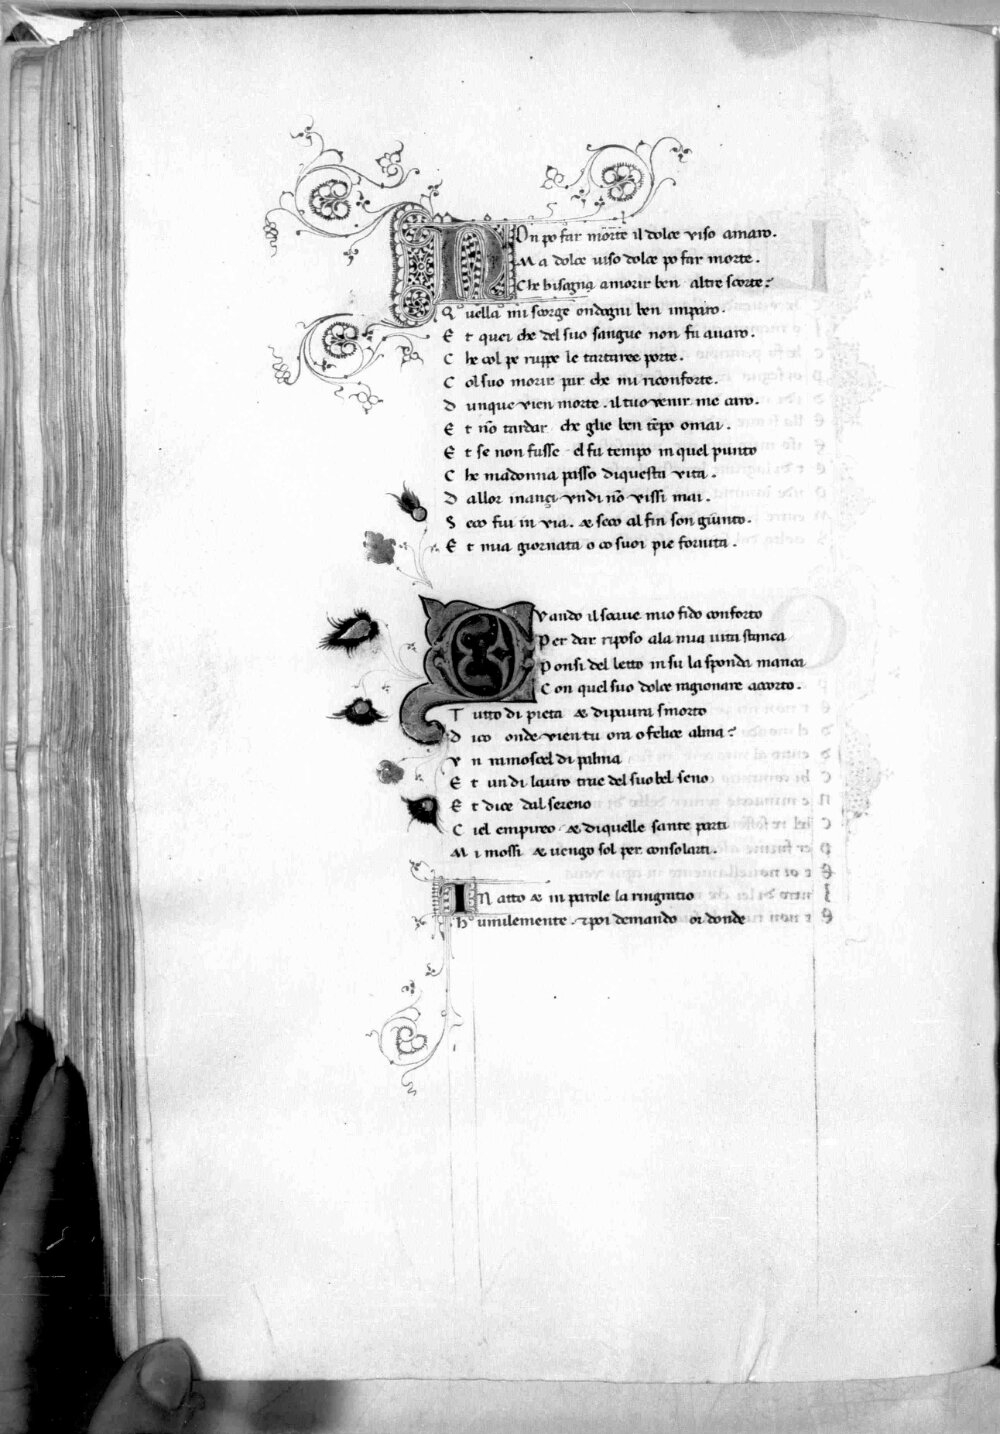 NOn po far morte il dolce viso amaro.
Ma dolce uiso dolce po far morte.
Che bisogna amorir ben altre scorte?
Quella mi scorge ondogni ben imparo.
Et quei che del suo sangue non fu auaro.
Che col pe ruppe le tartaree porte.
Col suo morir par che mi riconforte.
Dunque vien morte. il tuo venir me caro.
Et nō tardar che glie ben tēpo omai.
Et se non fusse el fu tempo in quel punto
Che madonna passo diquesta vita.
Dallor inançi vndi nō vissi mai.
Seco fui in via. & seco al fin son giunto.
Et mia giornata o co suoi pie fornita.
QVando il soaue mio fido conforto
Per dar riposo ala mia uita stanca
Ponsi del letto in su la sponda manca
Con quel suo dolce ragionare accorto.
Tutto di pieta & dipaura smorto
Dico onde vien tu ora o felice alma?
Vn ramoscel di palma
Et un di lauro trae del suo bel seno
Et dice dal sereno
Ciel empireo & diquelle sante parti
Mi mossi & uengo sol per consolarti.
IN atto & in parole la ringratio
Humilemente. & poi demando or donde